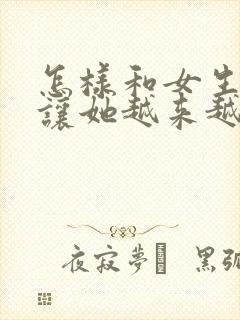 怎樣和女生
讓她越来越
夜寂夢 黑弧